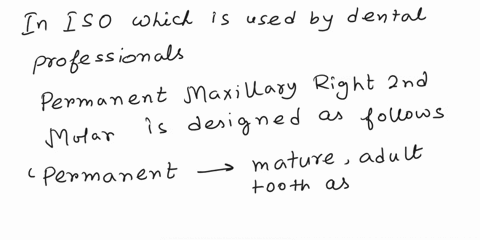 In ISO which is used by dental
professionals
Permanent Maxillary Right 2nd
Molar is designed as follows
( Permanent → mature, adult
tooth as